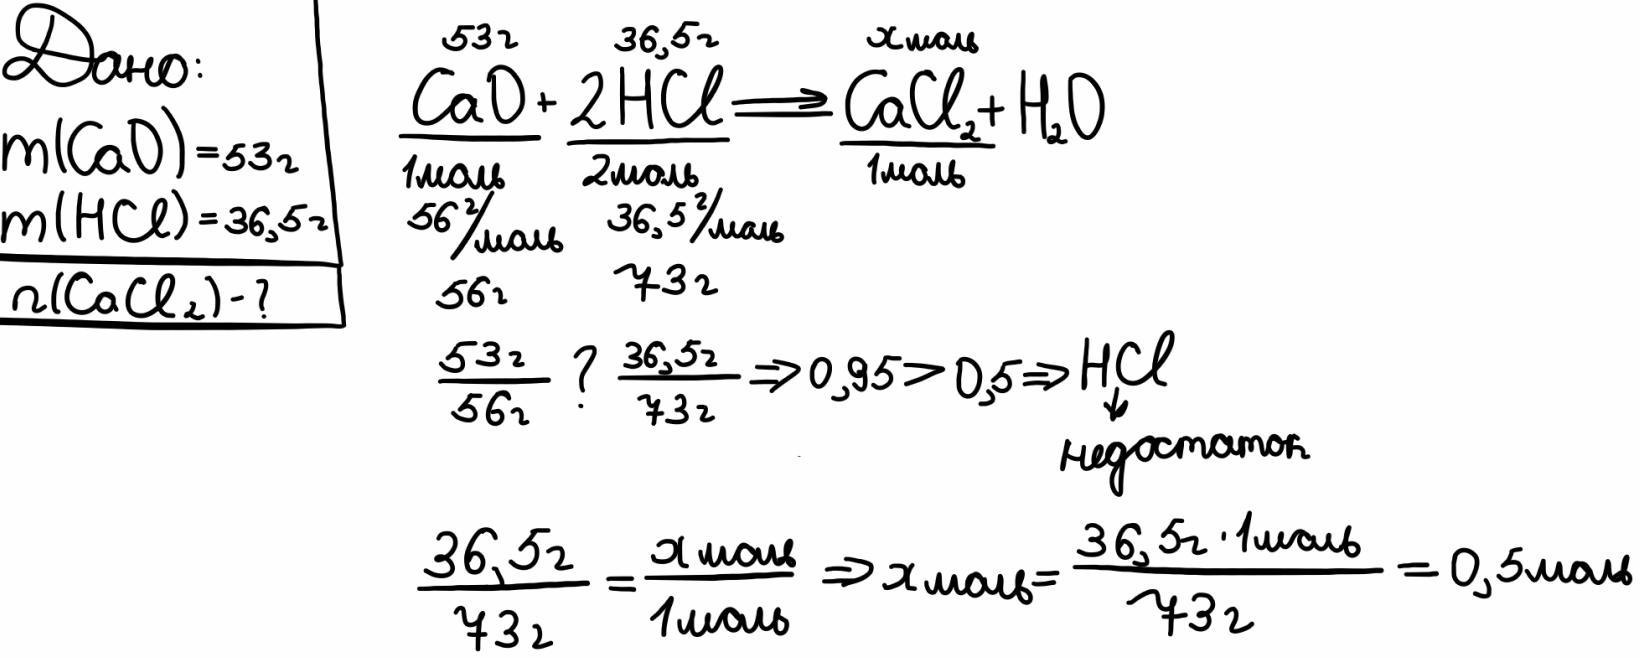 Дано:
m(CaO)=53г
m(HCl)=36,5г
n(CaCl₂)-?
53г 36,5г х моль
CaO + 2HCl ⟹ CaCl₂ + H₂O
1моль 2моль 1моль
56г/моль 36,5г/моль
56г 73г
53г/56г ? 36,5г/73г ⇒ 0,95 > 0,5 ⇒ HCl
↓
недостаток
36,5г/73г = х моль/1моль ⇒ х моль = 36,5г · 1моль/73г = 0,5моль